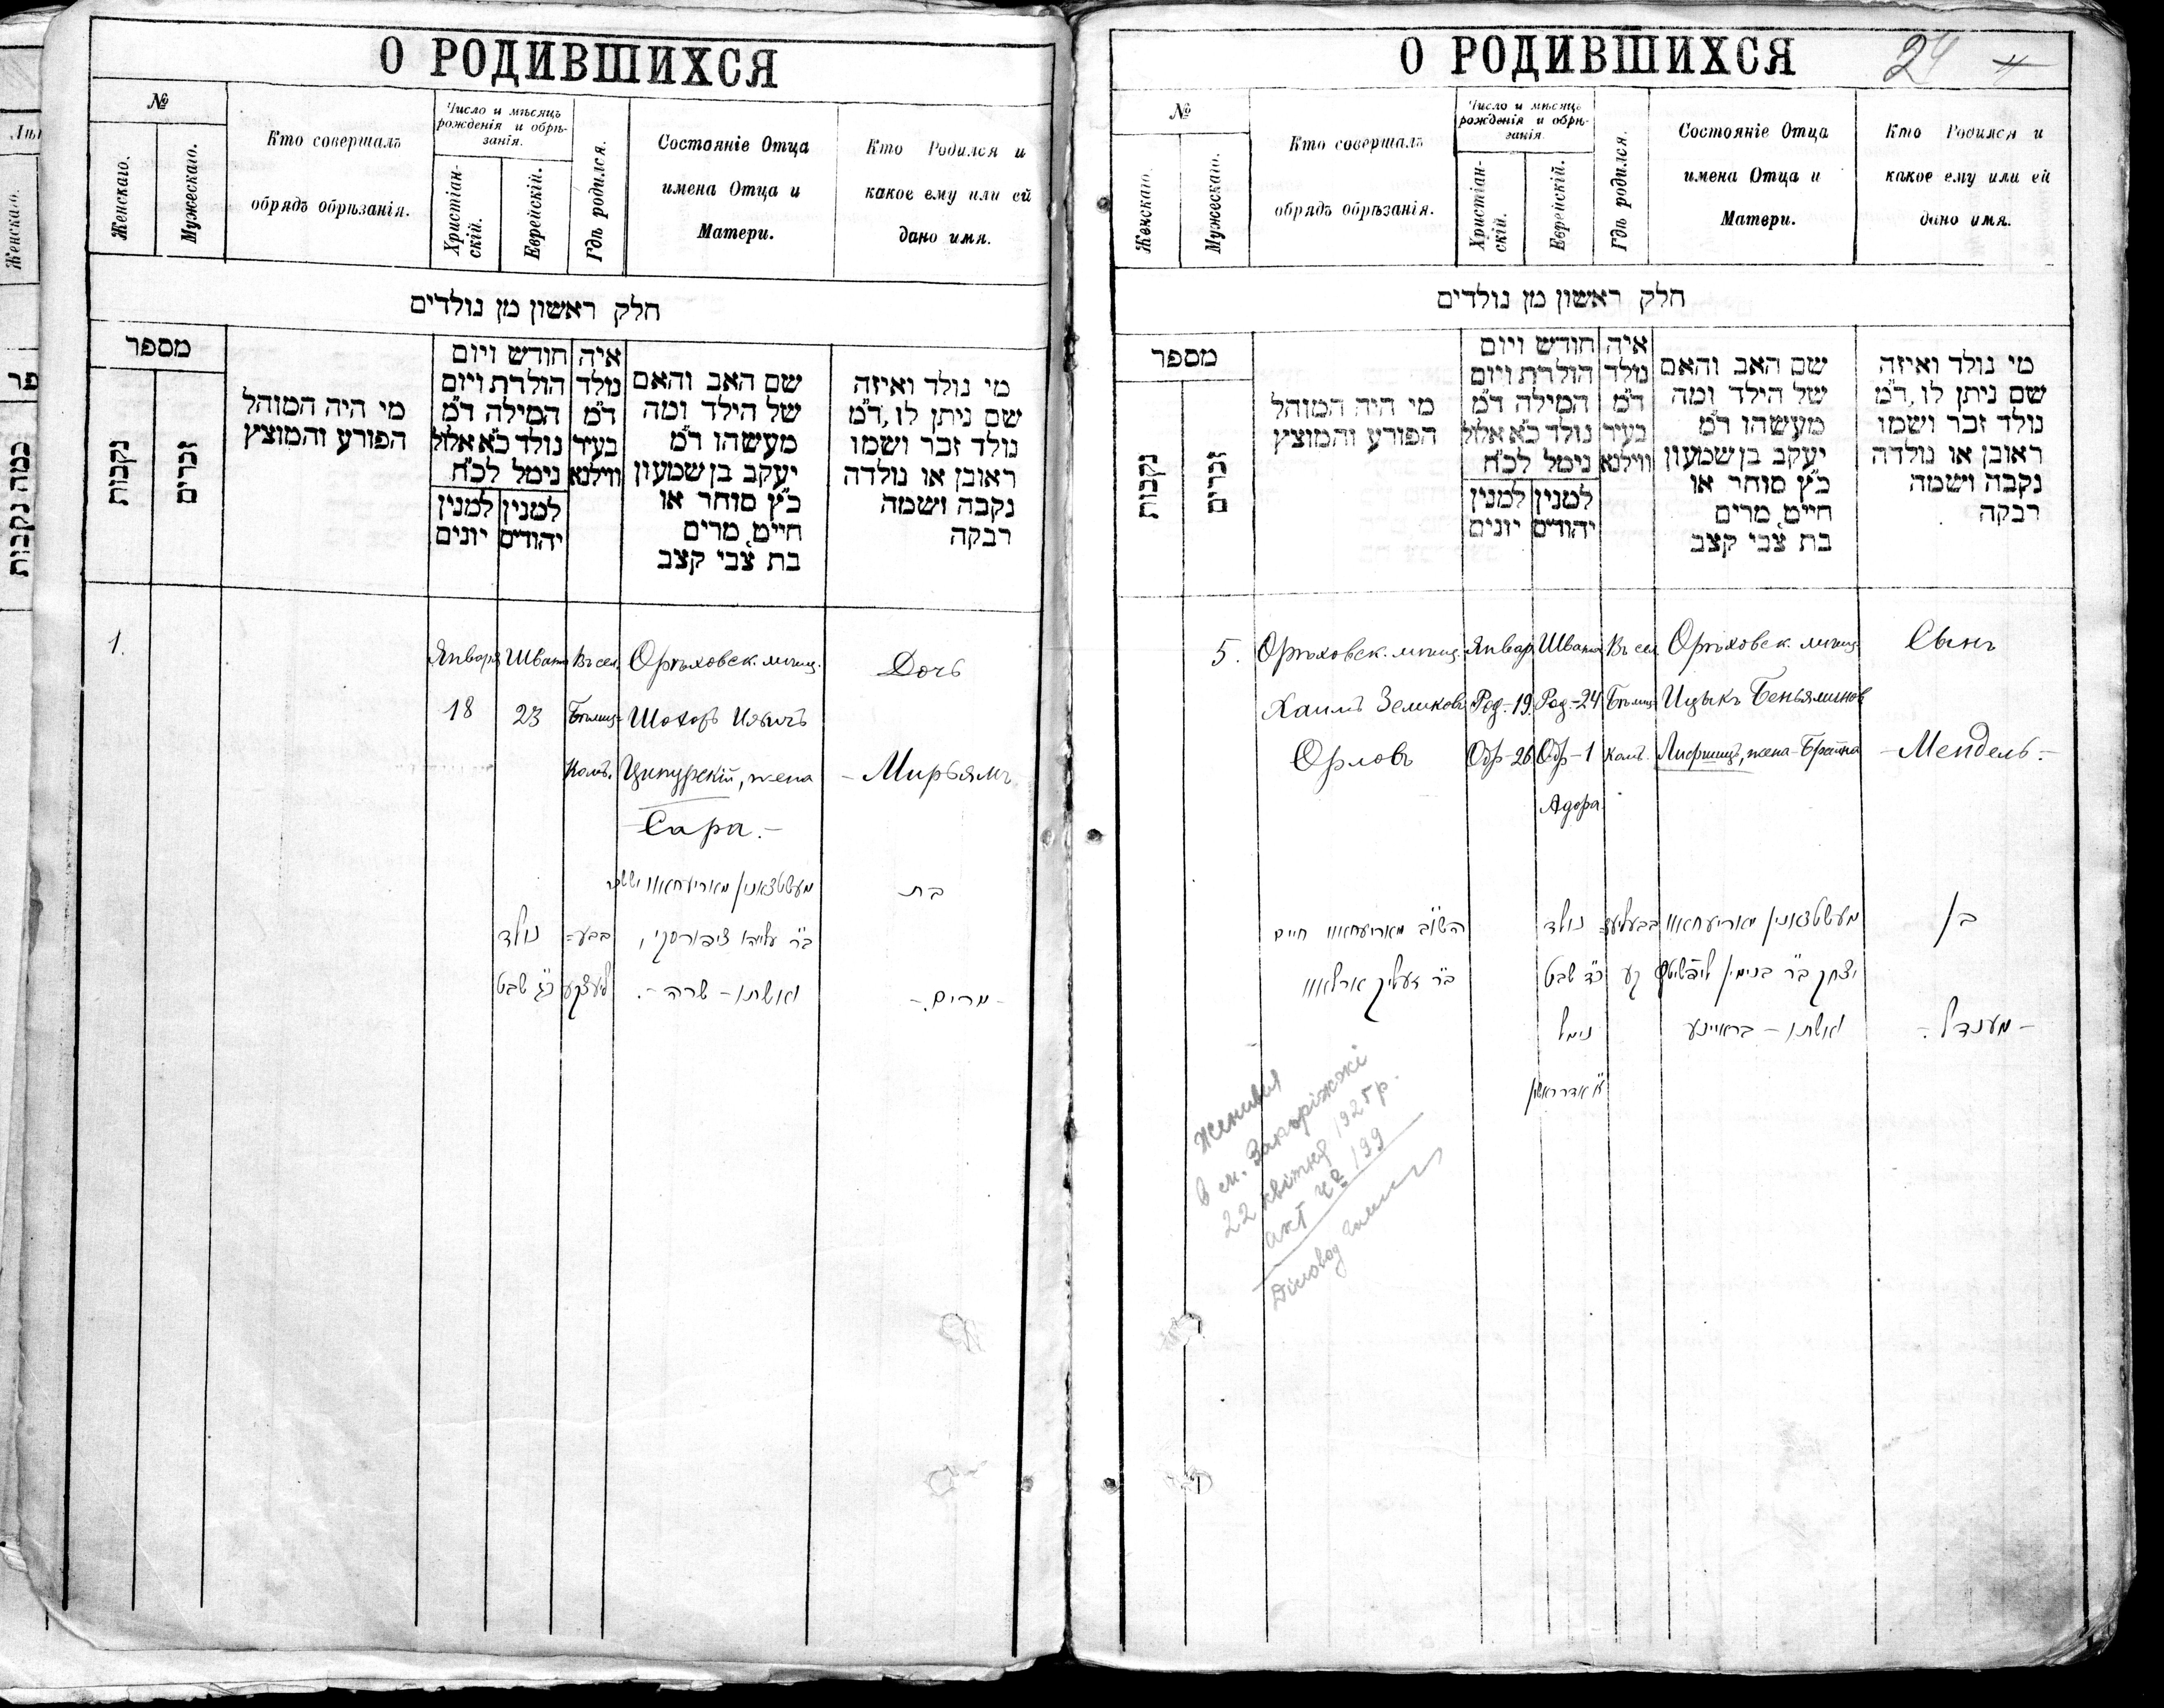 О РОДИВШИХСЯ
№
Женскаго.
Мужескаго.
Кто совершалъ
обрядъ обрѣзанія.
Число и мѣсяцъ
рожденія и обрѣ-
занія.
Христіан-
скій.
Еврейскій.
Гдѣ родился.
Состояніе Отца
имена Отца и
Матери.
Кто Родился и
какое ему или ей
дано имя.
חלק ראשון מן נולדים
מספר
נקבות
זכרים
מי היה המוהל
הפורע והמוצץ
חודש ויום
הולדת ויום
המילה ד"מ
נולד כ"א אלול
נימל לכ"ח
למנין למנין
יהודים יונים
איה
נולד
ד"מ
בעיר
ווילנא
שם האב והאם
של הילד ומה
מעשהו ד"מ
יעקב בן שמעון
כ"ץ סוחר או
חייט, מרים
בת צבי קצב
מי נולד ואיזה
שם ניתן לו, ד"מ
נולד זכר ושמו
ראובן או נולדה
נקבה ושמה
רבקה
1.
Января
18
Швата
23
Въ сел.
Бѣлиц-
Орѣховск. мѣщ.
Ципурскій, жена
Сара.-
Дочь
- Мирьямъ
בת
נולד
כ"ג שבט
ואשתו - שרה -.
- מרים.-
О РОДИВШИХСЯ
24
№
Женскаго.
Мужескаго.
Кто совершалъ
обрядъ обрѣзанія.
Число и мѣсяцъ
рожденія и обрѣ-
занія.
Христіан-
скій.
Еврейскій.
Гдѣ родился.
Состояніе Отца
имена Отца и
Матери.
Кто Родился и
какое ему или ей
дано имя.
חלק ראשון מן נולדים
מספר
נקבות
זכרים
מי היה המוהל
הפורע והמוצץ
חודש ויום
הולדת ויום
המילה ד"מ
נולד כ"א אלול
נימל לכ"ח
למנין למנין
יהודים יונים
איה
נולד
ד"מ
בעיר
ווילנא
שם האב והאם
של הילד ומה
מעשהו ד"מ
יעקב בן שמעון
כ"ץ סוחר או
חייט, מרים
בת צבי קצב
מי נולד ואיזה
שם ניתן לו, ד"מ
נולד זכר ושמו
ראובן או נולדה
נקבה ושמה
רבקה
5.
Орѣховск. мѣщ.
Хаимъ Зеликовъ
Орловъ
Январ.
Род.-19.
Обр-26
Швата
Род.-24
Обр-1
Адора
Въ сел
Бѣлиц-
Орѣховск. мѣщ.
Ицыкъ Беньяминов
Лифшицъ, жена - Брайна
Сынъ
- Мендель.-
בן
נולד
כ"ד שבט
נימל
יצחק ב"ר בנימין ליפשיטץ
ואשתו - בראיינע
- מענדל.-
חיים
ב"ר זעליק ארלאוו
Женився
в м. Запоріжжі
22 квітня 1925 р.
акт ч² 199
Діловод